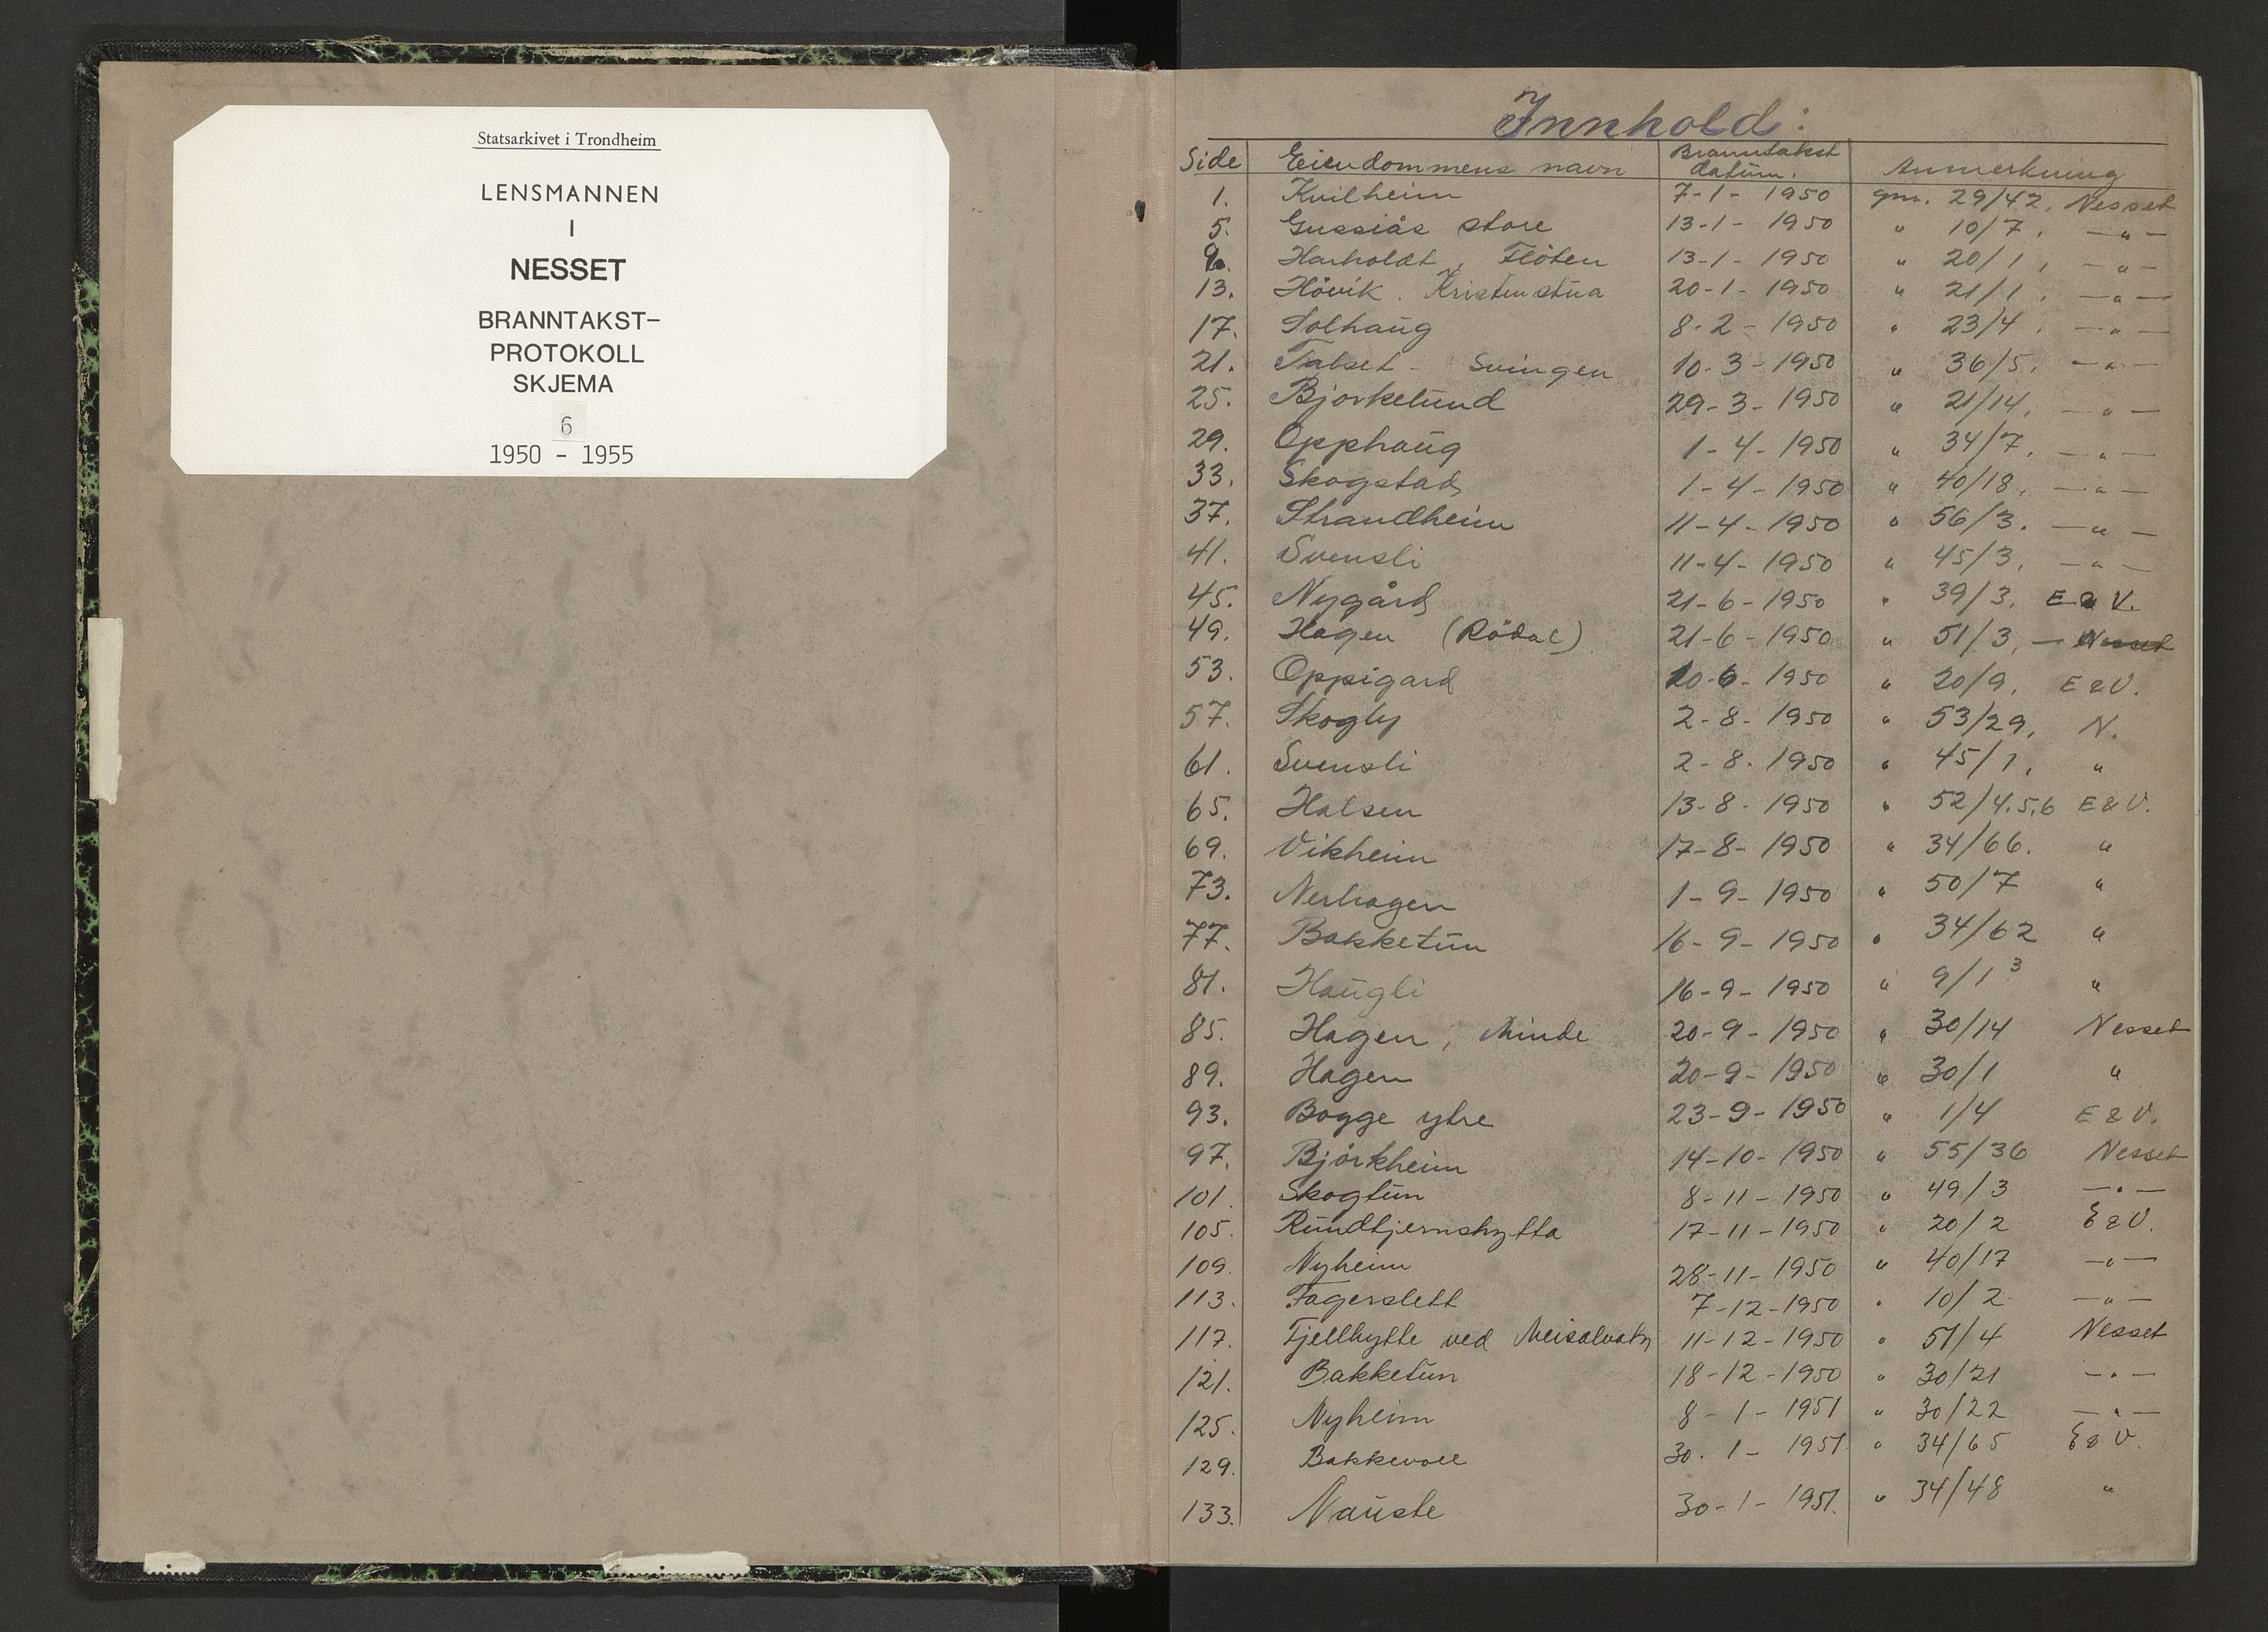 Statsarkivet i Trondheim
LENSMANNEN
I
NESSET
BRANNTAKST-
PROTOKOLL
SKJEMA
6
1950 - 1955
Innhold:
Side Eiendommens navn Branntakst datum. Anmerkning
1. Kvilheim 7-1- 1950 gnr. 29/42, Nesset
5. Gussiås store 13-1- 1950 " 10/7, —"—
9. Harholdt, Flöten 13-1- 1950 " 20/1, —"—
13. Hövik. Kristenstua 20-1- 1950 " 21/1. —"—
17. Solhaug 8-2- 1950 " 23/4. —"—
21. Talset - Svingen 10-3-1950 " 36/5. —"—
25. Bjorkelund 29-3-1950 " 21/14. —"—
29. Opphaug 1-4-1950 " 34/7. —"—
33. Skogstad 1-4-1950 " 40/18. —"—
37. Strandheim 11-4-1950 " 56/3. —"—
41. Svensli 11-4-1950 " 45/3. —"—
45. Nygård 21-6-1950 " 39/3. E & V.
49. Hagen (Rödal) 21-6-1950 " 51/3, — Nesset
53. Oppigard 20-6-1950 " 20/9. E & V.
57. Skogly 2-8-1950 " 53/29, N.
61. Svensli 2-8-1950 " 45/1, "
65. Halsen 13-8-1950 " 52/4.5.6 E & V.
69. Vikheim 17-8-1950 " 34/66. "
73. Nerhagen 1-9-1950 " 50/7 "
77. Bakketun 16-9-1950 " 34/62 "
81. Haugli 16-9-1950 " 9/1 3 "
85. Hagen, Minde 20-9-1950 " 30/14 Nesset
89. Hagen 20-9-1950 " 30/1 "
93. Bogge ytre 23-9-1950 " 1/4 E & V.
97. Björkheim 14-10-1950 " 55/36 Nesset
101. Skogtun 8-11-1950 " 49/3 —"—
105. Rundtjernshytta 17-11-1950 " 20/2 E & V.
109. Nyheim 28-11-1950 " 40/17 —"—
113. Fagerslett 7-12-1950 " 10/2 —"—
117. Fjellhytte ved Meisalvatn 11-12-1950 " 51/4 Nesset
121. Bakketun 18-12-1950 " 30/21 —"—
125. Nyheim 8-1-1951 " 30/22 —"—
129. Bakkevoll 30.1-1951 " 34/65 E & V.
133. Nauste 30-1-1951. " 34/48 "